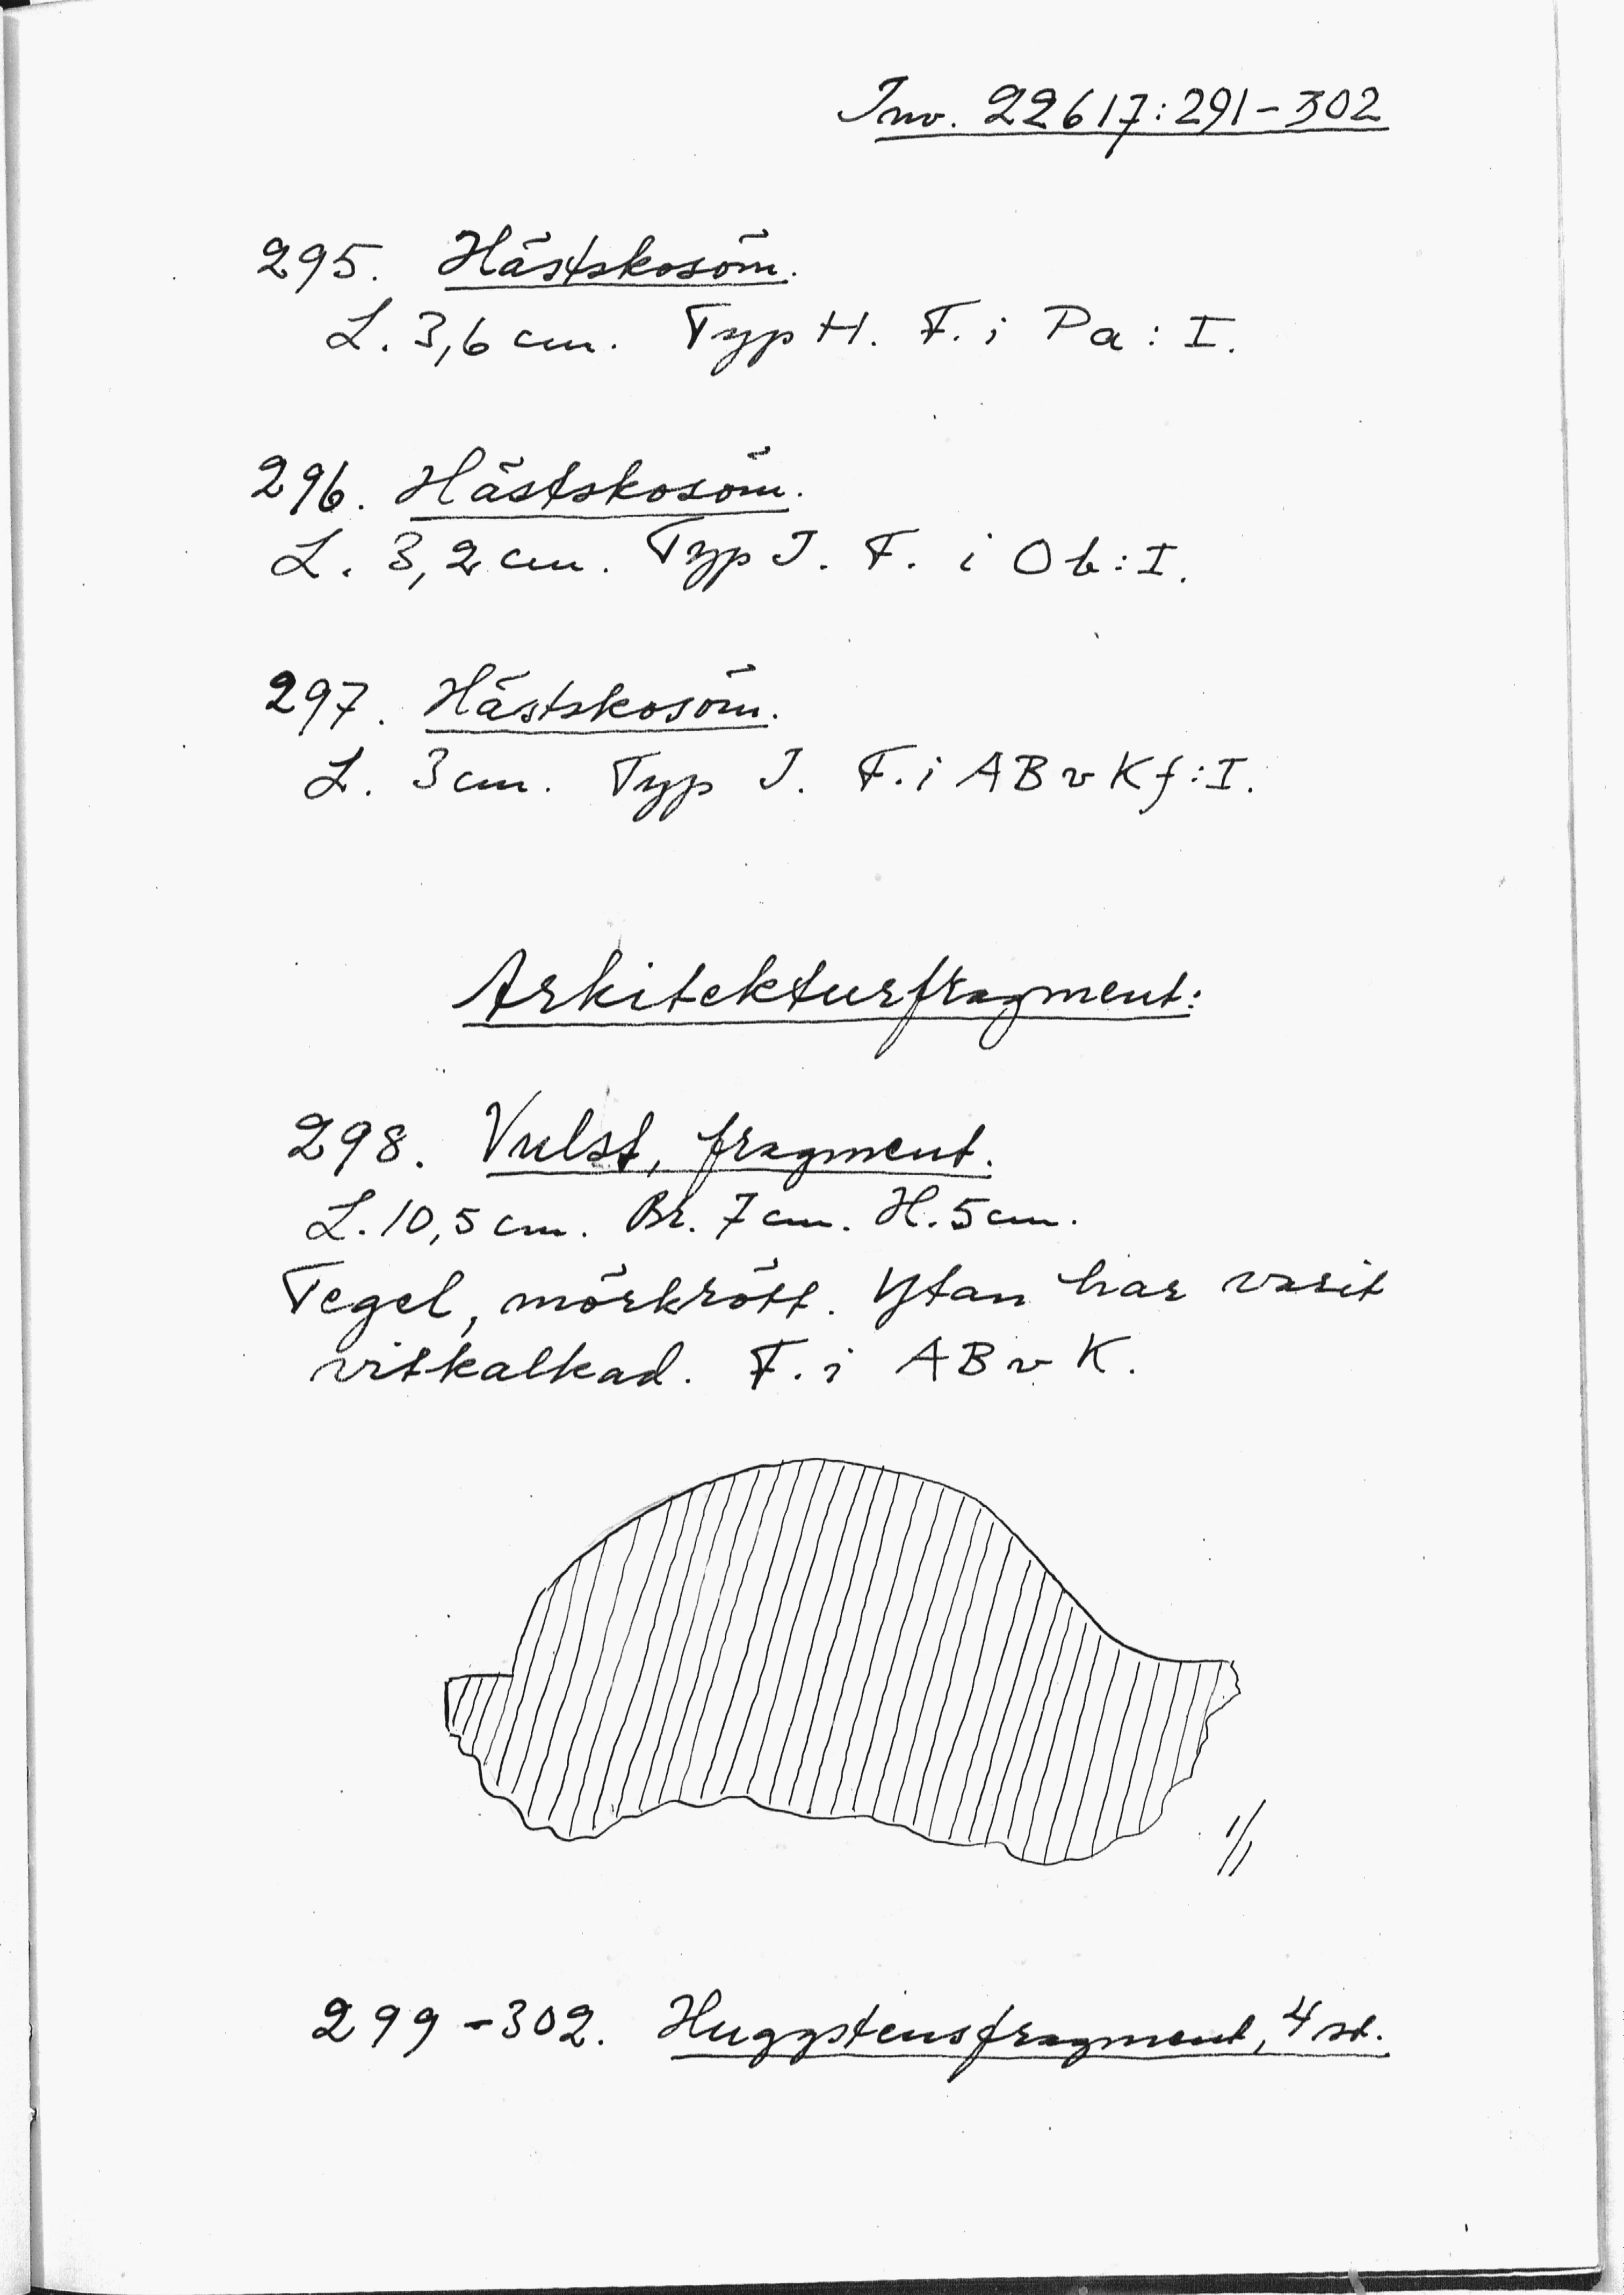 Inv. 22617:291-302
295. Hästskosöm.
L. 3,6 cm. Typ H. F. i Pa:I.
296. Hästskosöm.
L. 3,2 cm. Typ J. F. i Ob:I.
297. Hästskosöm.
L. 3 cm. Typ J. F. i ABvKf:I.
Arkitekturfragment:
298. Vulst, fragment.
L. 10,5 cm. Br. 7 cm. H. 5 cm.
Tegel, mörkrött. Ytan har varit
vitkalkad. F. i ABvK.
1/1
299-302. Huggstensfragment, 4 st.